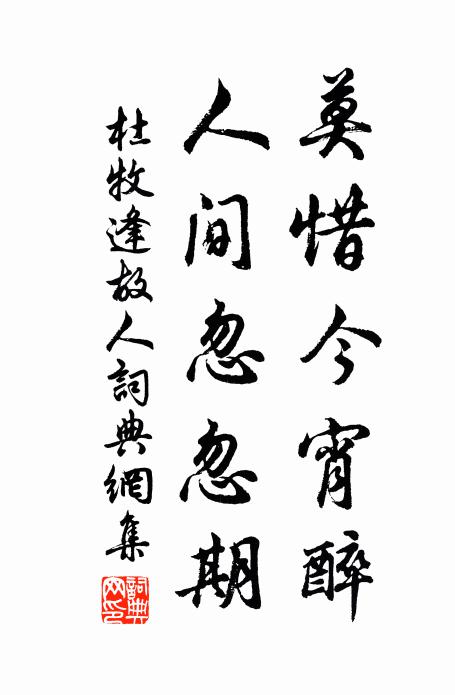 莫惜今宵醉
人间忽忽期
杜牧逢故人詞典網集
詞典
网印